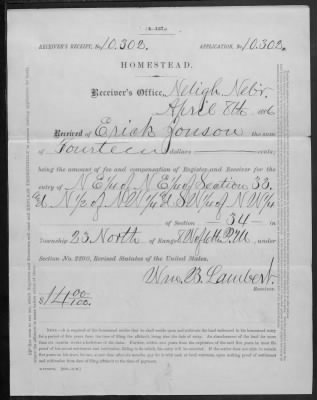 (4-137.)
RECEIVER'S RECEIPT, No. 10.302. APPLICATION, No. 10.302.
HOMESTEAD.
Receiver's Office, Neligh, Nebr.
April 8th 1886
Received of Erick Jonson the sum
of Fourteen dollars cents;
being the amount of fee and compensation of Register and Receiver for the
entry of N E¼ of N E¼ of Section 33.
N½ of N W¼ & S W¼ of N W¼
of Section -34- in
Township 23 North of Range 8 W of 6th P.M, under
Section No. 2290, Revised Statutes of the United States.
Wm. B. Lambert.
Receiver.
$14 00/100.
NOTE.—It is required of the homestead settler that he shall reside upon and cultivate the land embraced in his homestead entry
for a period of five years from the time of filing the affidavit, being also the date of entry. An abandonment of the land for more
than six months works a forfeiture of the claim. Further, within two years from the expiration of the said five years he must file
proof of his actual settlement and cultivation, failing to do which, his entry will be canceled. If the settler does not wish to remain
five years on his tract, he can, at any time after six months, pay for it with cash or land-warrants, upon making proof of settlement
and cultivation from date of filing affidavit to the time of payment.